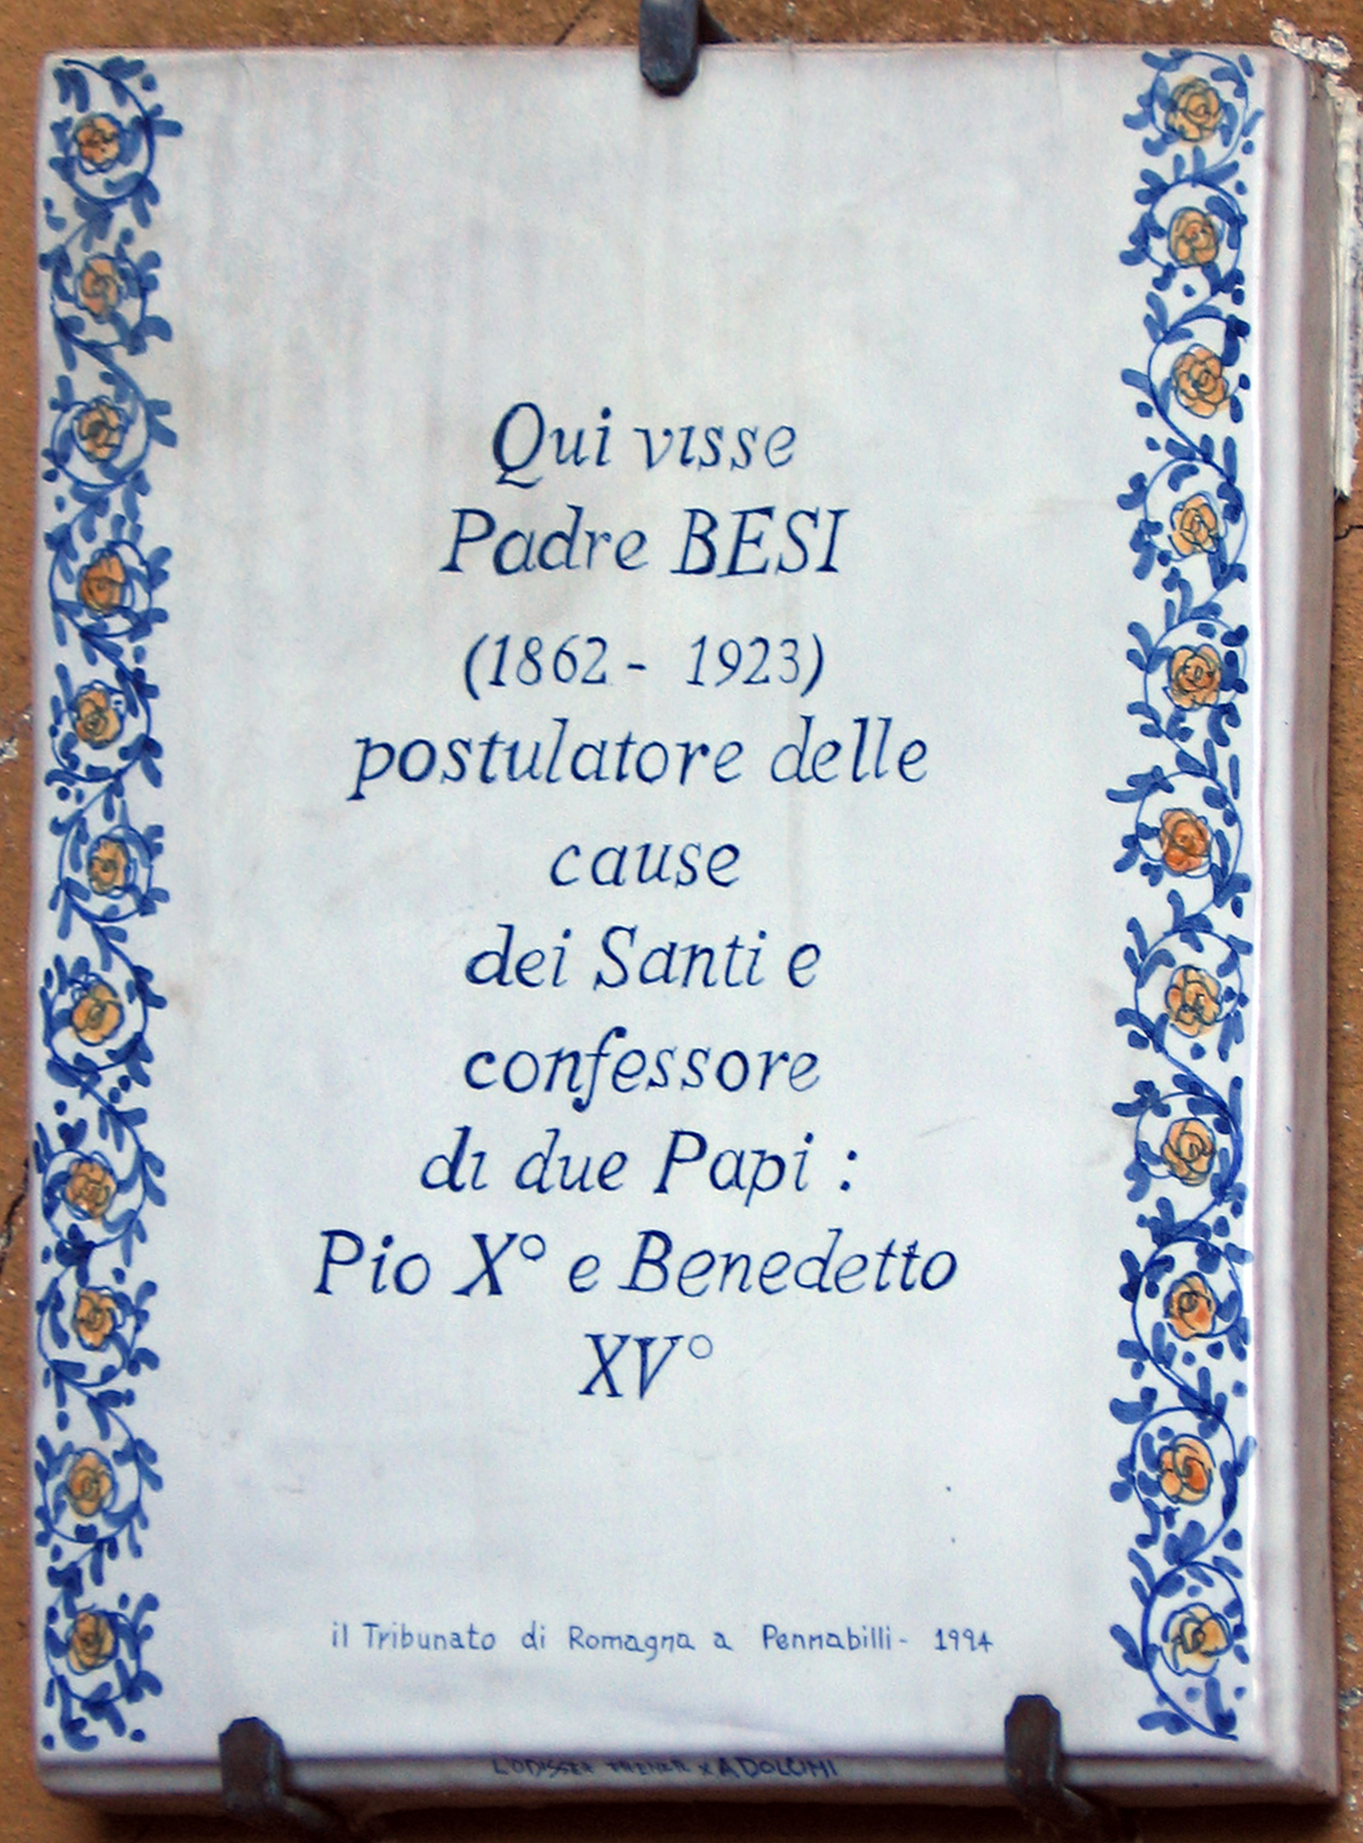 Qui visse
Padre BESI
(1862 - 1923)
postulatore delle
cause
dei Santi e
confessore
di due Papi :
Pio X° e Benedetto
XV°
il Tribunato di Romagna a Pennabilli - 1994
A DOLCINI